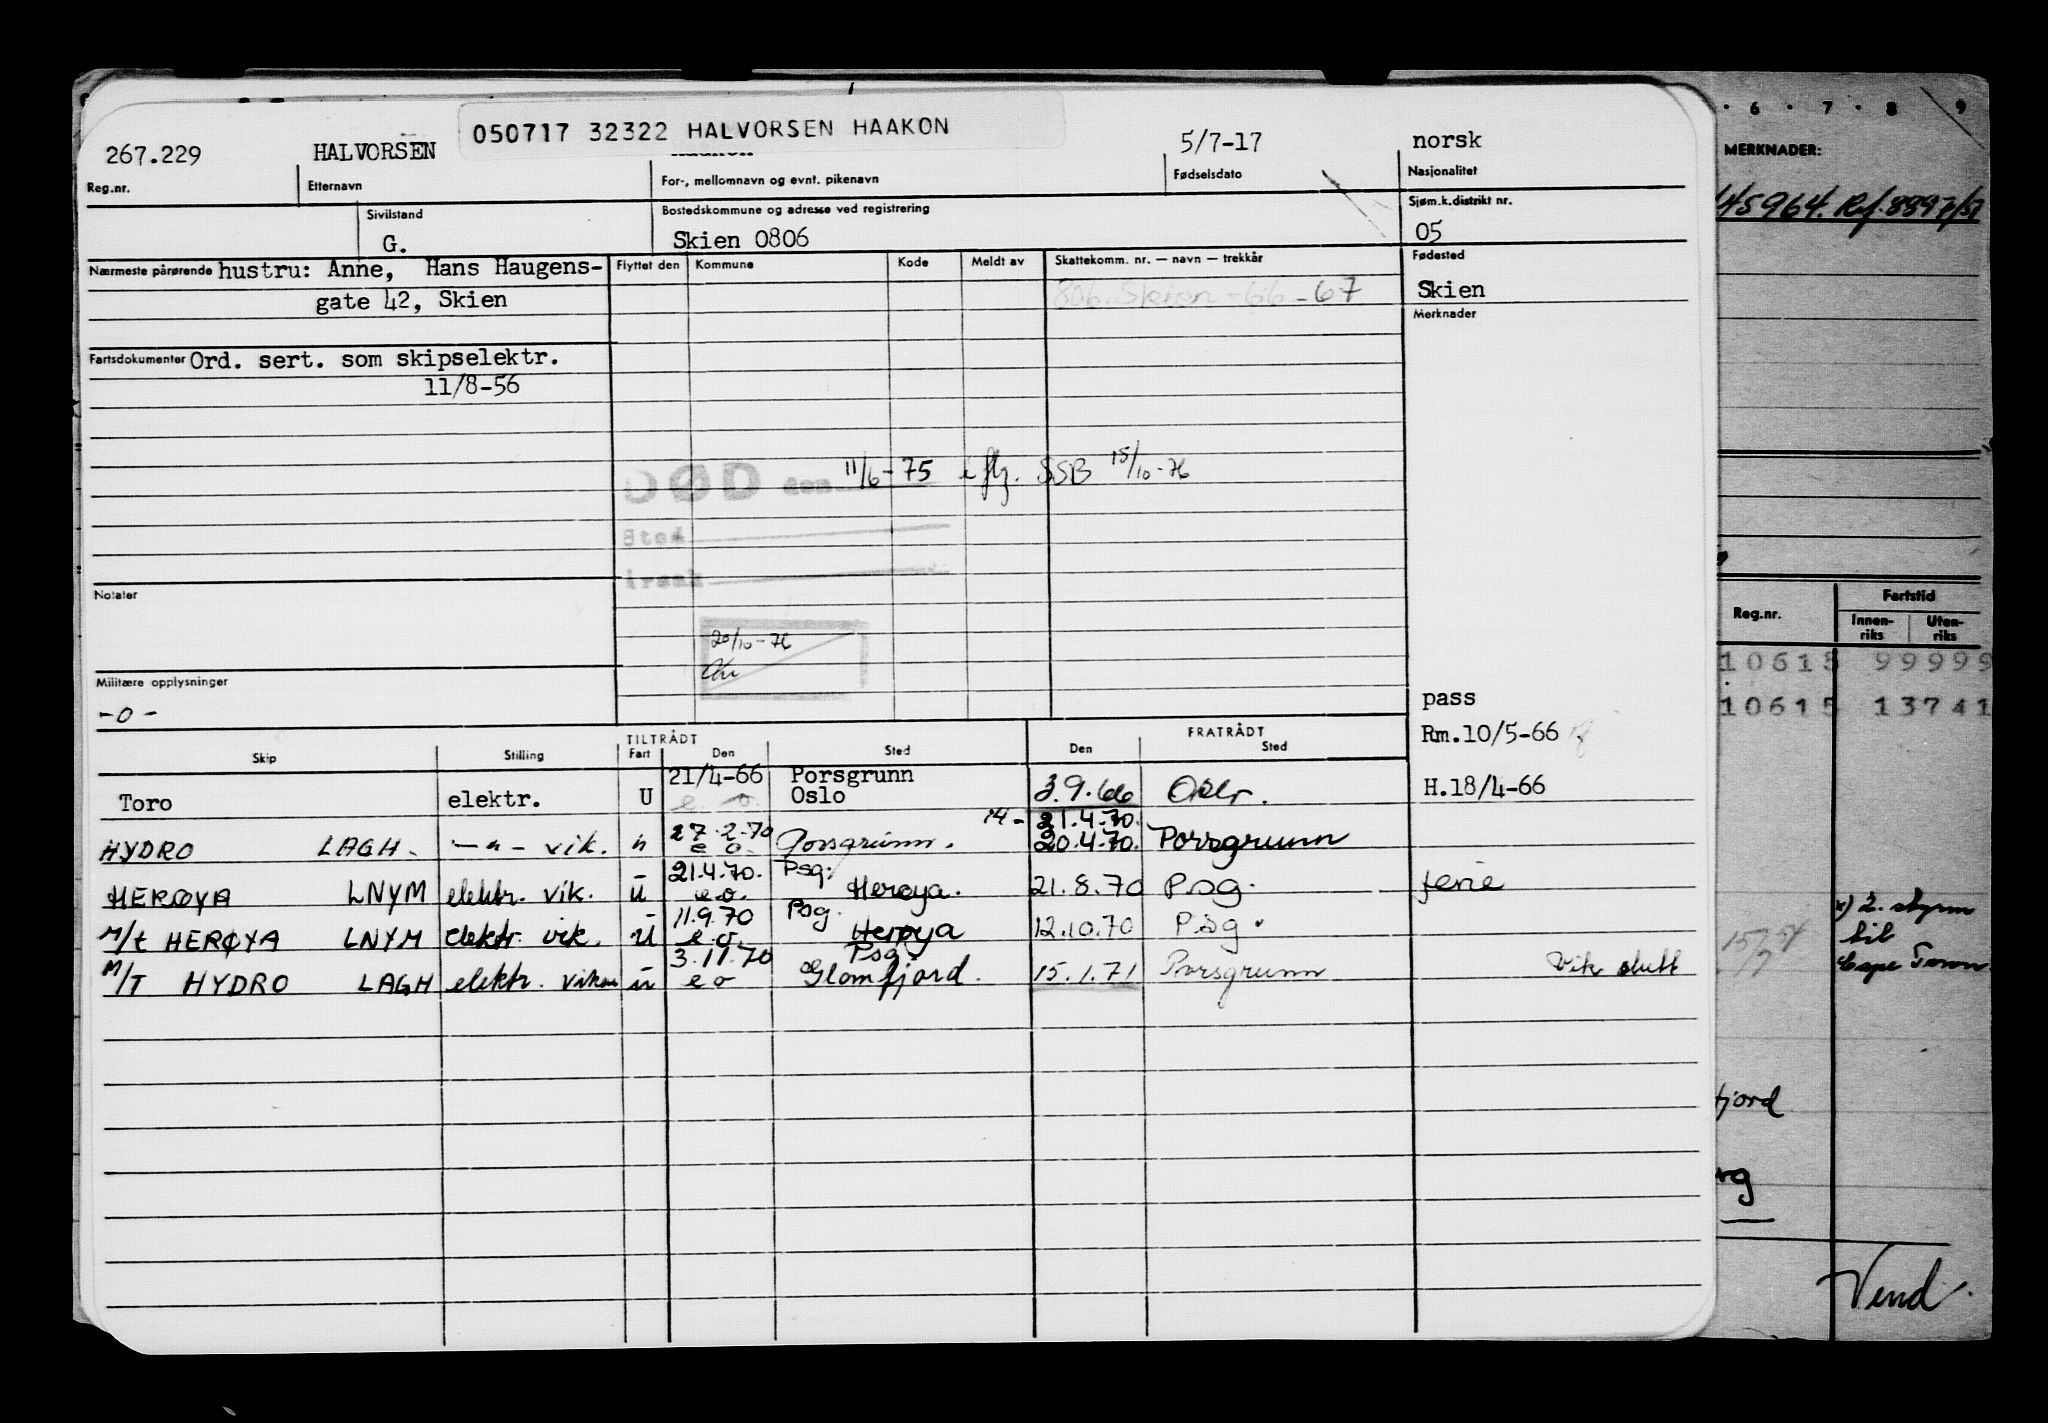 050717 32322 HALVORSEN HAAKON
267.229 HALVORSEN 5/7-17 norsk
Reg.nr. Etternavn For-, mellomnavn og evnt. pikenavn Fødselsdato Nasjonalitet
Sivilstand Bostedskommune og adresse ved registrering Sjøm.k.distrikt nr.
G. Skien 0806 05
Nærmeste pårørende hustru: Anne, Hans Haugens- Flyttet den Kommune Kode Meldt av Skattekomm. nr. — navn — trekkår Fødested
gate 42, Skien 806. Skien -66-67 Skien
Merknader
Fartsdokumenter Ord. sert. som skipselektr.
11/8-56
DØD den 11/6-75 iflg. SSB 15/10-76
Sted
Årsak
Notater
20/10-76
Militære opplysninger
-0- pass
Rm.10/5-66
TILTRÅDT FRATRÅDT
Skip Stilling Fart Den Sted Den Sted
21/4-66 Porsgrunn
Toro elektr. U e. o. Oslo 3.9.66 Oslo. H.18/4-66
27.2.70 14- 21.4.70.
HYDRO LAGH. -"- vik. e o. Porsgrunn. 20.4.70. Porsgrunn
21.4.70. Psg.
HERØYA LNYM elektr. vik. u e.o. Herøya. 21.8.70 Psg. ferie
11.9.70 Psg.
M/t HERØYA LNYM elektr. vik. U e.o. Herøya 12.10.70 Psg.
3.11.70 Psg.
M/T HYDRO LAGH elektr. vikar u e o Glomfjord. 15.1.71 Porsgrunn Vik slutt
6 . 7 . 8 9
MERKNADER:
145964. Ref. 8897/57
Reg.nr. Fartstid
Innen-riks Uten-riks
10615 99999
10615 13741
x) 2. styrm
til
Cape Town
fjord
rg
Vend.